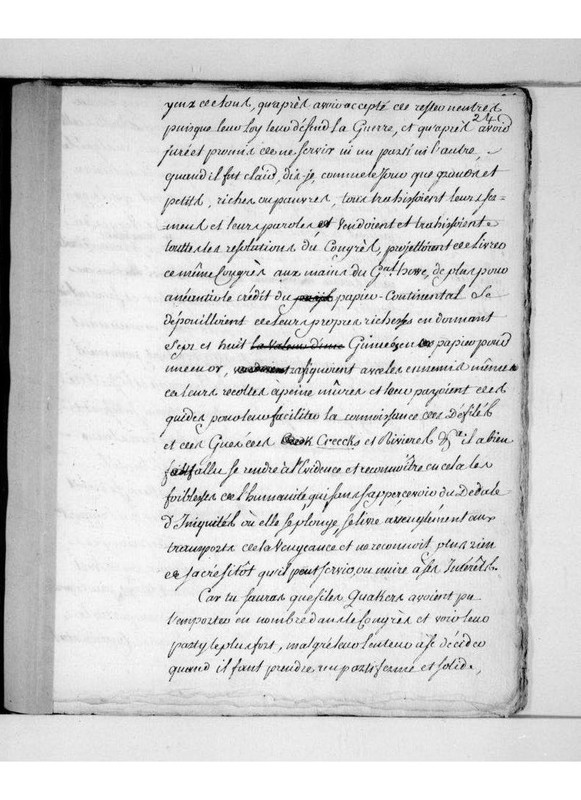 yeux de tous, qu'après avoir accepté de rester neutres
24
puisque leur Loy leur défend la Guerre, et qu'après avoir
juré et promis de ne servir ni un parti ni l'autre,
quand il fut clair, dis-je, comme le jour que grands et
petits, riches ou pauvres, tous trahissoient leurs ser-
mens et leurs paroles et vendoient et trahissoient
touttes les resolutions du Congrès, projettoient de livrer
ce même Congrès aux mains du Gal howe, de plus pour
anéantir le crédit du papier-Continental Se
dépouilloient de leurs propres richesses en donnant
Sept et huit Guinées en papier pour
une en or, trafiquoient avec les ennemis même
de leurs recoltes à peine mûres et leur payoient des
guides pour leur faciliter la connoissance des Défilés
et des Gués des Creecks et Rivieres &a il a bien
fallu se rendre à l'Evidence et reconnoître en cela les
foiblesses de l'humanité qui sans s'appercevoir du Dedale
d'Iniquités où elle se plonge, se livre aveuglément aux
transports de la Vengeance et ne reconnoit plus rien
de sacré sitôt qu'il peut servir ou nuire à ses Intérêts.
Car tu sauras que si les Quakers avoient pu
l'emporter en nombre dans le Congrès et voir leur
party le plus fort, malgré leur lenteur à se décider
quand il faut prendre un parti ferme et solide,